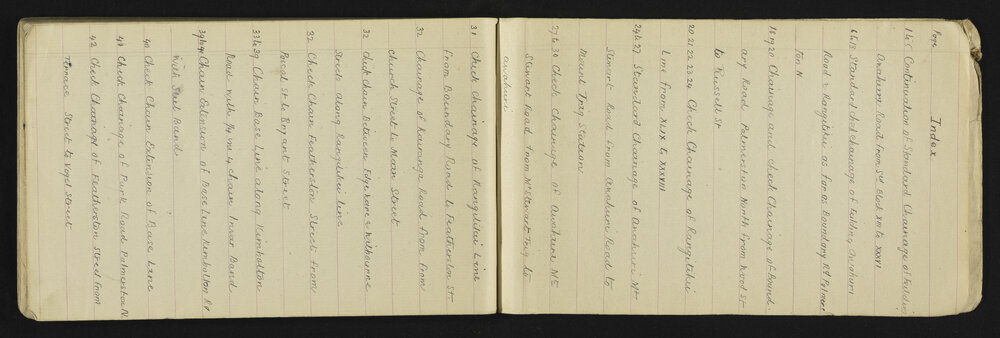 Index
Page
1 to 5 Continuation of Standard Chainage of Feilding
Awahuri Road from Std Block XIX to XXXVI
6 to 13 Standard check chainage of Feilding Awahuri
Road & Rangitikei as far as Boundary Rd Palmers
Ton N
18 19 20 Chainage and check Chainage of Bound
ary Road Palmerston North from Wood St
to Russell St
20 21 22 23 24 Check Chainage of Rangitikei
Line from XLIX to XXXVIII
24 to 27 Standard Chainage of Awahuri Mt
Stewart Road from Awahuri Road to
Mound Trig Station
27 to 30 Check Chainage of Awahuri Mt
Stewart Road from Mt Stewart Trig to
Awahuri
31 Check Chainage of Rangitikei Line
from Boundary Road to Featherston St
32 Chainage of Kairanga Road from
Church Street to Main Street
32 Check Chain Between Edgeware & Melbourne
Streets along Rangitikei Line
32 Check Chain Featherston Street from
Pascal St to Bryant Street
33 to 39 Chain Base Line along Kimbolton
Road with 4 chain Invar Band
39 to 41 Chain Extension of Base Line Kimbolton Rd
with Steel Band
40 Check Chain Extension of Base Line
41 Check Chainage of Park Road Palmerston N.
42 Check Chainage of Featherston Street from
Terrace Street to Vogel Street